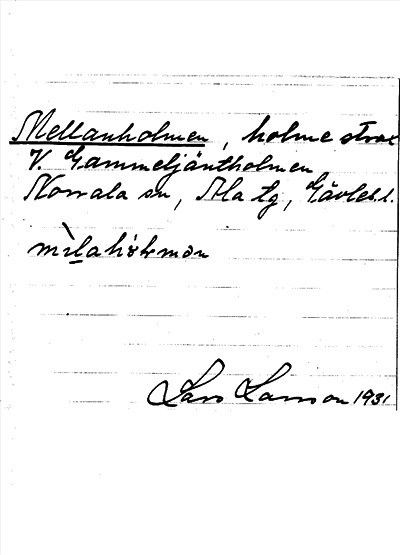 Mellanholmen, holme strax
V. Gammeljäntholmen
Norrala sn, Ala tg, Gävleb. l.
Lars Larsson 1931